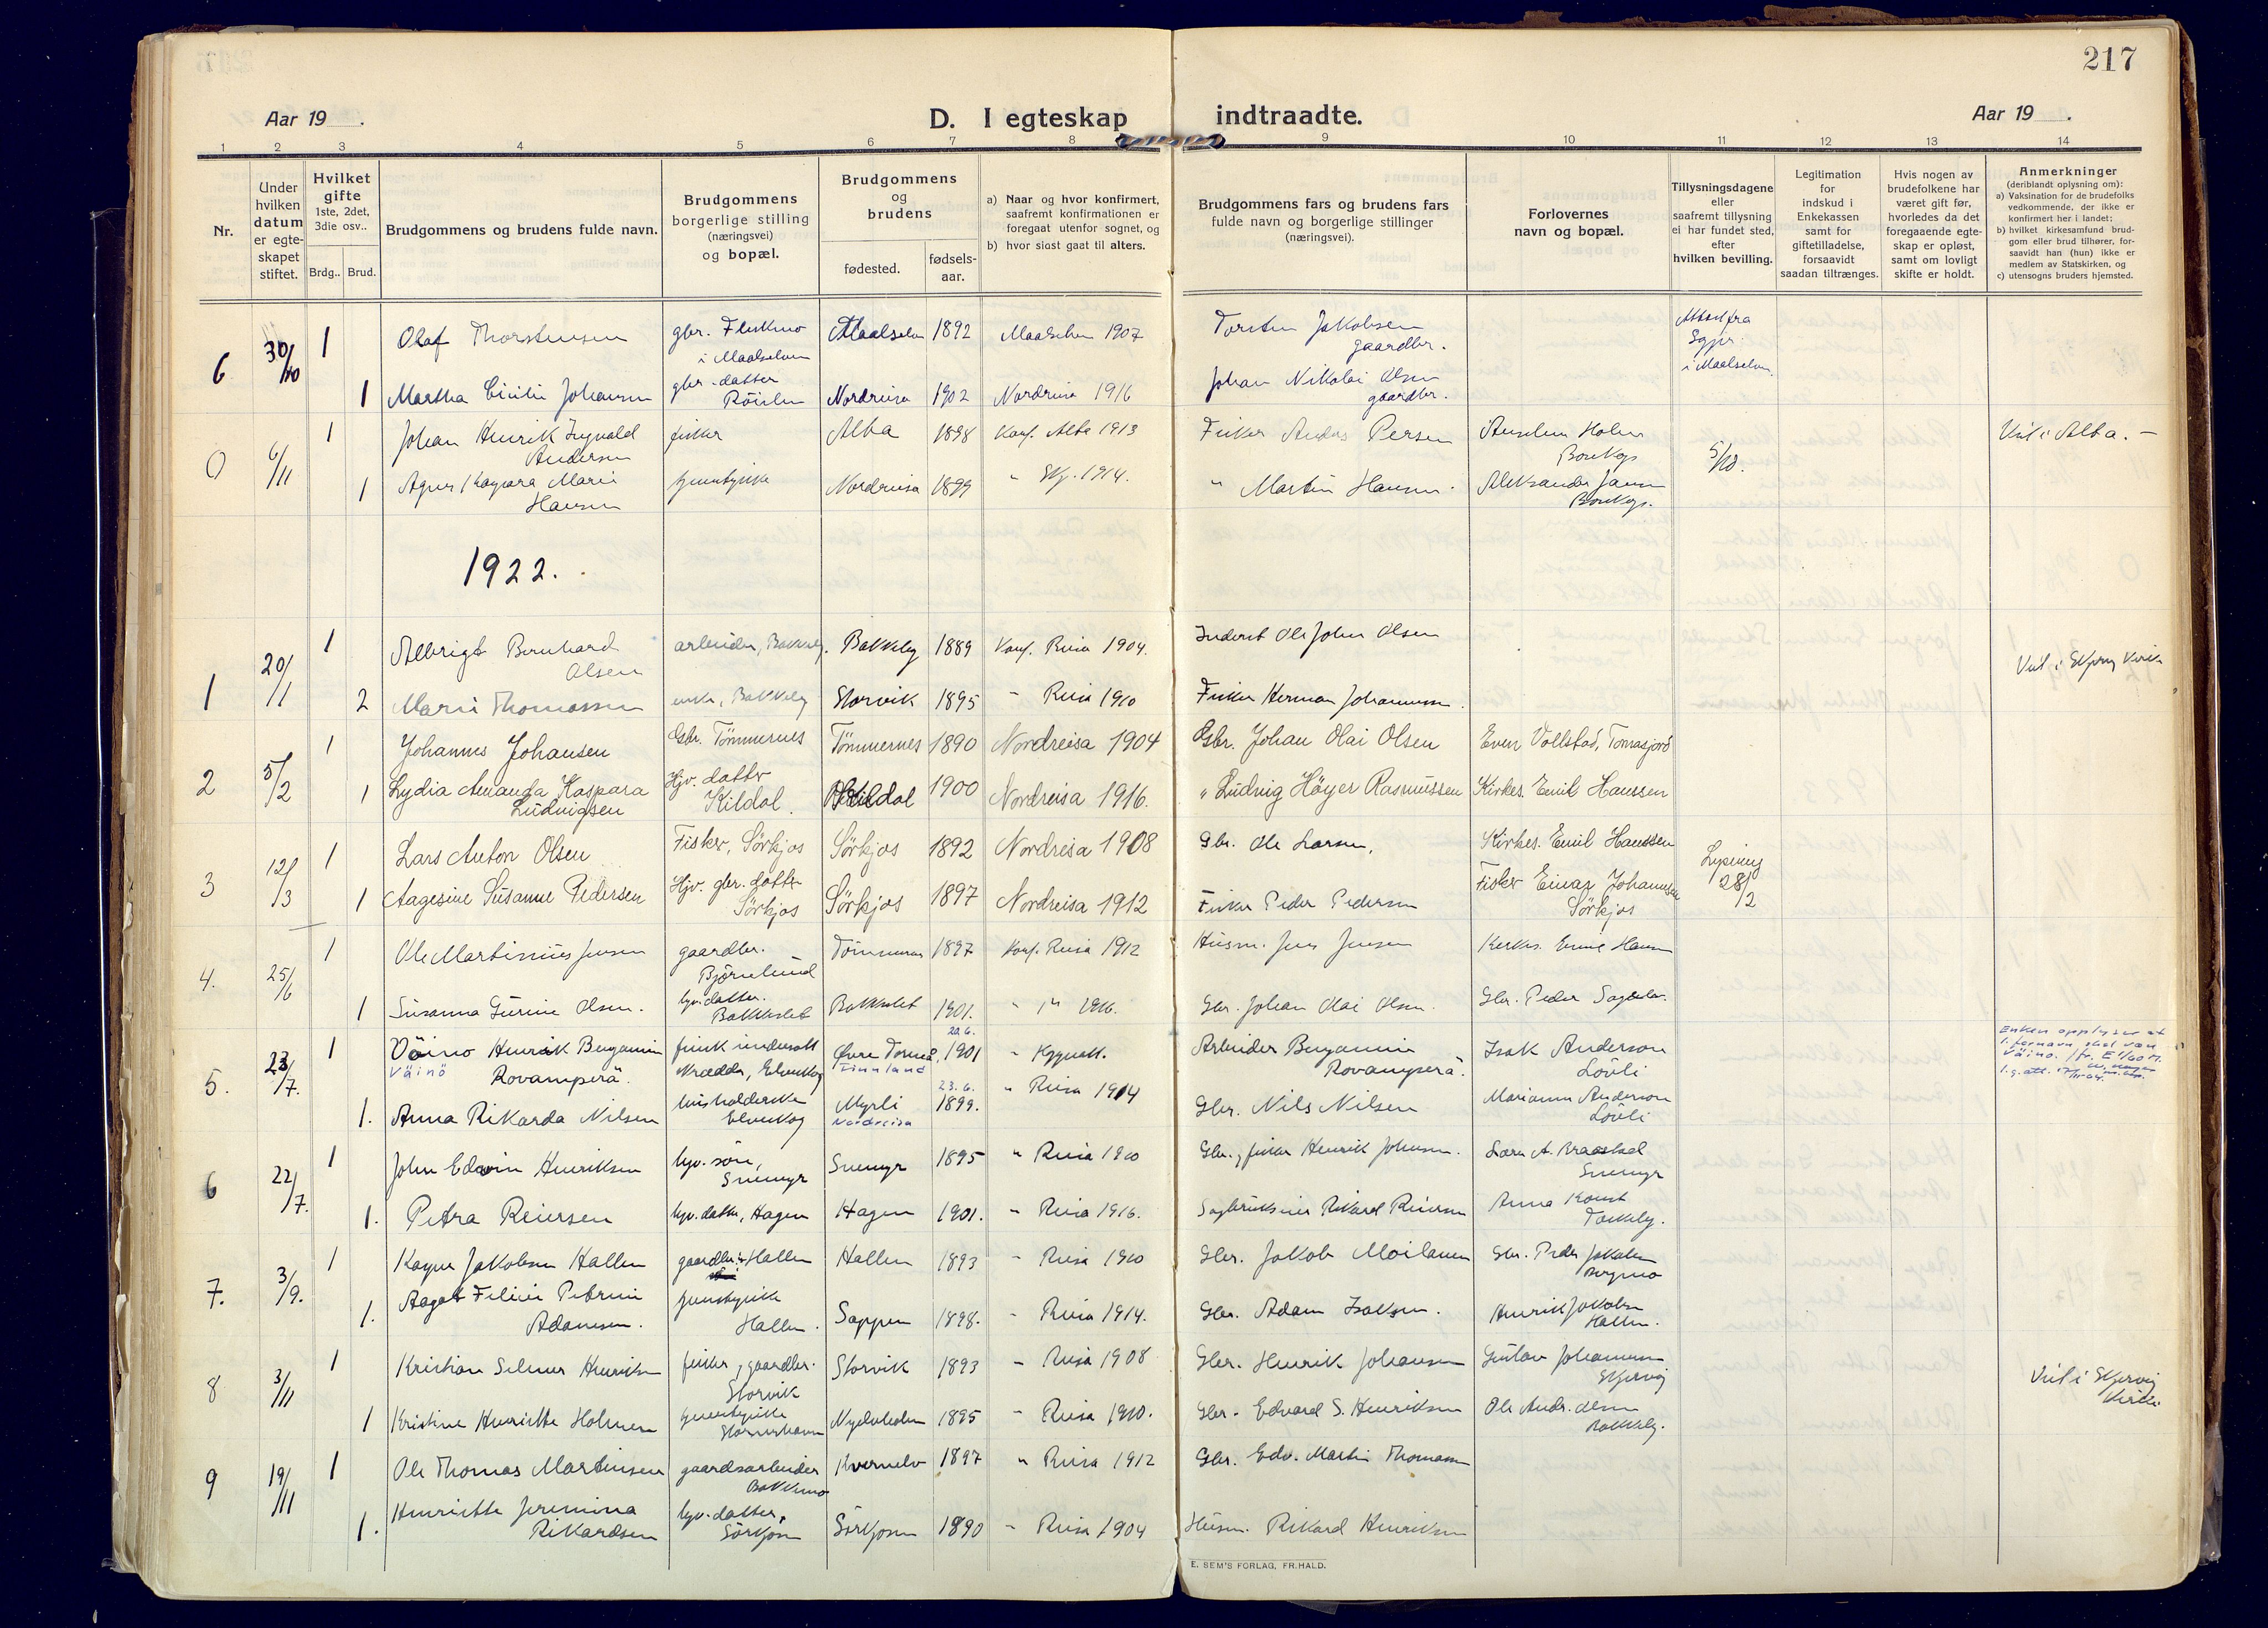 217
Aar 19
D. I egteskap
indtraadte.
Aar 19
1 2 3 4 5 6 7 8 9 10 11 12 13 14
Nr.
Under hvilken datum er egte-skapet stiftet.
Hvilket gifte
1ste, 2det, 3die osv..
Brdg.. Brud.
Brudgommens og brudens fulde navn.
Brudgommens borgerlige stilling (næringsvei) og bopæl.
Brudgommens og brudens
fødested.
fødsels-aar.
a) Naar og hvor konfirmert, saafremt konfirmationen er foregaat utenfor sognet, og
b) hvor sidst gaat til alters.
Brudgommens fars og brudens fars fulde navn og borgerlige stillinger (næringsvei).
Forlovernes navn og bopæl.
Tillysningsdagene eller saafremt tillysning ei har fundet sted, efter hvilken bevilling.
Legitimation for indskud i Enkekassen samt for giftetilladelse, forsaavidt saadan tiltrænges.
Hvis nogen av brudefolkene har været gift før, hvorledes da det foregaaende egte-skap er opløst, samt om lovligt skifte er holdt.
Anmerkninger
(deriblandt oplysning om):
a) Vaksination for de brudefolks vedkommende, der ikke er konfirmert her i landet;
b) hvilket kirkesamfund brud-gom eller brud tilhører, for-saavidt han (hun) ikke er medlem av Statskirken, og
c) utensogns bruders hjemsted.
6 30/10 1 Olaf Thorstensen gbr. i Maalselven Maalselv 1892 Maalselven 1907 Torsten Jakobsen gaardbr. Attest fra i Maalselven
1 Martha Johansen gbr. datter Nordreisa 1902 Nordreisa 1916 Johan Nikolai Olsen gaardbr.
0 6/11 1 Johan Henrik Ingvald Andersen fisker Alta 1898 Konf. Alta 1913 Fisker Anders Persen Anselm Holm 5/10. Viet i Alta. –
1 Agnes Kaspara Marie Hansen Nordreisa 1899 " Skj. 1914. " Martin Hansen. Aleksander
1922.
1 20/1 1 Albrigt Bernhard Olsen arbeider, Bakkeby. Bakkeby 1889 Konf. Reisa 1904. Inderst Ole John Olsen Viet i Skjervøy Kirke
2 Marie Thomassen enke, Bakkeby Storvik 1895 " Reisa 1910 Fisker Herman Johannessen.
2 5/2 1 Johannes Johansen Gbr. Tömmernes Tömmernes 1890 Nordreisa 1904 Gbr. Johan Olai Olsen Even Vollstad, Tomasjord
1 Lydia Amanda Kaspara Ludvigsen Hjv. datter Kildal. Kildal 1900 Nordreisa 1916. " Ludvig Höyer Rasmussen Kirkes. Emil Hanssen
3 12/3 1 Lars Anton Olsen Fisker, Sörkjos Sörkjos 1892 Nordreisa 1908 Gbr. Ole Larsen, Kirkes. Emil Hanssen Lysning 28/2
1 Aagesine Susanne Pedersen Hjv. gbr. datter Sörkjos Sörkjos 1897 Nordreisa 1912 Fisker Peder Pedersen Fisker Einar Johannesen Sörkjos
4. 25/6 1 Ole Martinius Jensen gaardbr. Björnlund Tömmernes 1897 Konf. Reisa 1912 Husm. Jens Jensen Kirkes. Emil Hansen
1 Susanna Gurine Olsen. hjv. datter. Bakkeslet Bakkeslet 1901. " " 1916. Gbr. Johan Olai Olsen. Gbr. Peder
5. 23/7. 1 Väino Henrik Benjamin Rovamperä. finsk undersått Øvre Torneå, 20.6. 1901 Arbeider Benjamin Rovamperä. Isak Anderson Lövli
Väinö Finnland
Enken opplyser at 1. fornavn skal være Väino.
1. Anna Rikarda Nilsen husholderske Elvekog Myrli Nordreisa 23.6. 1899. " Reisa 1914 Gbr. Nils Nilsen Marianne Anderson Lövli
6 22/7. 1 John Edvin Henriksen hjv. sön, Snemyr Snemyr 1895 " Reisa 1910 Gbr., fisker Henrik Johnsen. Lars A. Snemyr
1. Petra Reiersen hjv. datter, Hagen Hagen 1901. " Reisa 1916. Rikard Reiersen Anna
7. 3/9. 1 Jakobsen Hallen gaardbr. Hallen Hallen 1893 " Reisa 1910 Gbr. Jakob Moilanen Gbr. Peder Jakobsen
1. Aagot Petrine Adamsen. Hallen. Sappen 1898. " Reisa 1914. Gbr. Adam Isaksen. Henrik Jakobsen Hallen.
8 3/11 1 Kristian Selmer Henriksen fisker, gaardbr. Storvik Storvik 1893 " Reisa 1908 Gbr. Henrik Johansen Gustav Johannessen Skjervøy Viet i Skjervøy Kirke.
1 Kristine Henriette Holmen 1895 " Reisa 1910. Gbr. Edvard S. Henriksen Ole Andr. Olsen Bakkeby.
9 19/11 1 Ole Thomas Martinsen gaardsarbeider Bakkemo Kvernelv 1897 " Reisa 1912 Gbr. Edv. Martin Thomassen
1. Henriette Jeremina Rikardsen hjv. datter, Sörkjosen Sörkjosen 1890 " Reisa 1904 Husm. Rikard Henriksen
E. SEM'S FORLAG, FR.HALD.